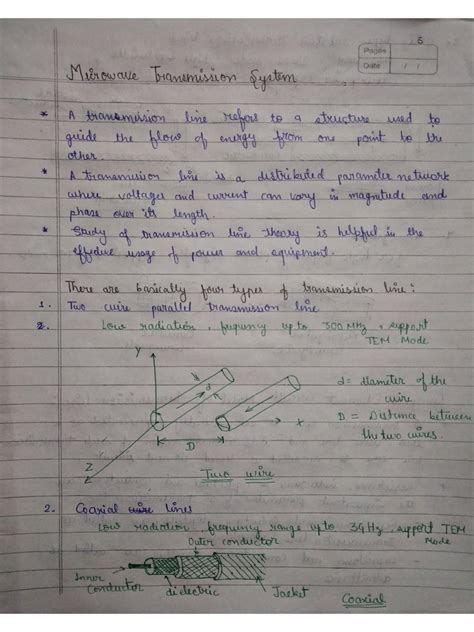 5
Pages
Date / /
Microwave Transmission System
* A transmission line refers to a structure used to
guide the flow of energy from one point to the
other.
* A transmission line is a distributed parameter network
where voltages and current can vary in magnitude and
phase over its length.
* Study of transmission line theory is helpful in the
effective usage of power and equipment.
There are basically four types of transmission line:
1. Two wire parallel transmission line
2. Low radiation, frequency up to 300 MHz, support
TEM Mode
y
d
x
D
Z
d = diameter of the
wire
D = Distance between
the two wires.
Two wire
2. Coaxial wire lines
Low radiation, frequency range upto 3GHz, support TEM
Mode
Outer conductor
Inner
Conductor
dielectric
Jacket
Coaxial